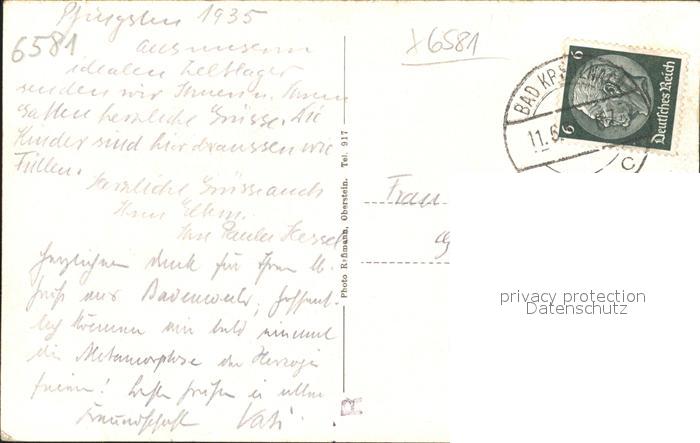 Pfingsten 1935
6581
aus unserm
idealen Zeltlager
senden wir Ihnen u. Ihrem
Gatten herzliche Grüsse. Die
Kinder sind hier draussen wie
Füllen.
Herzliche Grüsse auch
Ihren Eltern.
Ihre Paula Hessel
Herzlichen Dank für Ihren lb.
Gruß aus Badenweiler, hoffent-
lich können wir bald einmal
die Metamorphose der Herzogin
feiern! Beste Grüße in alter
Freundschaft
Photo Reßmann, Oberstein. Tel. 917
x6581
BAD KR
11.6
C
6 6
Deutsches Reich
Frau
privacy protection
Datenschutz